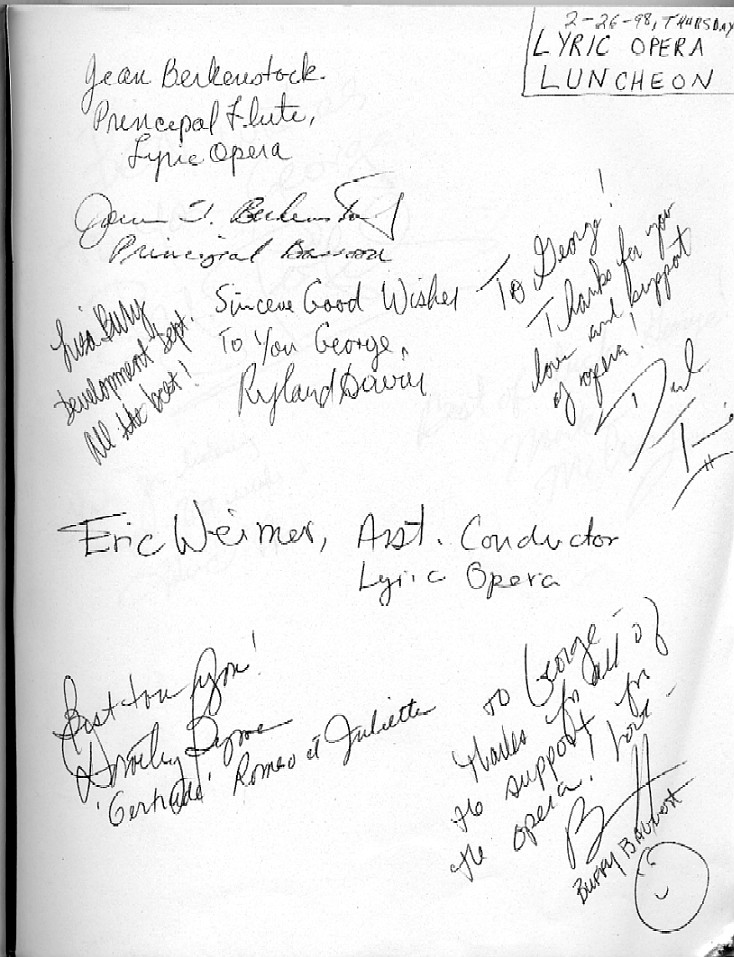 2-26-98, THURSDAY
LYRIC OPERA
LUNCHEON
Jean Berkenstock
Principal Flute,
Lyric Opera
Principal Bassoon
Lisa Bury
Development Dept.
All the best!
Sincere Good Wishes
To You George,
Ryland Davies
To George!
Thanks for your
love and support
of opera!
Eric Weimer, Asst. Conductor
Lyric Opera
Best to you!
Dorothy Byrne
'Gertrude' Romeo et Juliette
To George -
Thanks for all of
the support for
the opera! Love -
Buffy Baggott